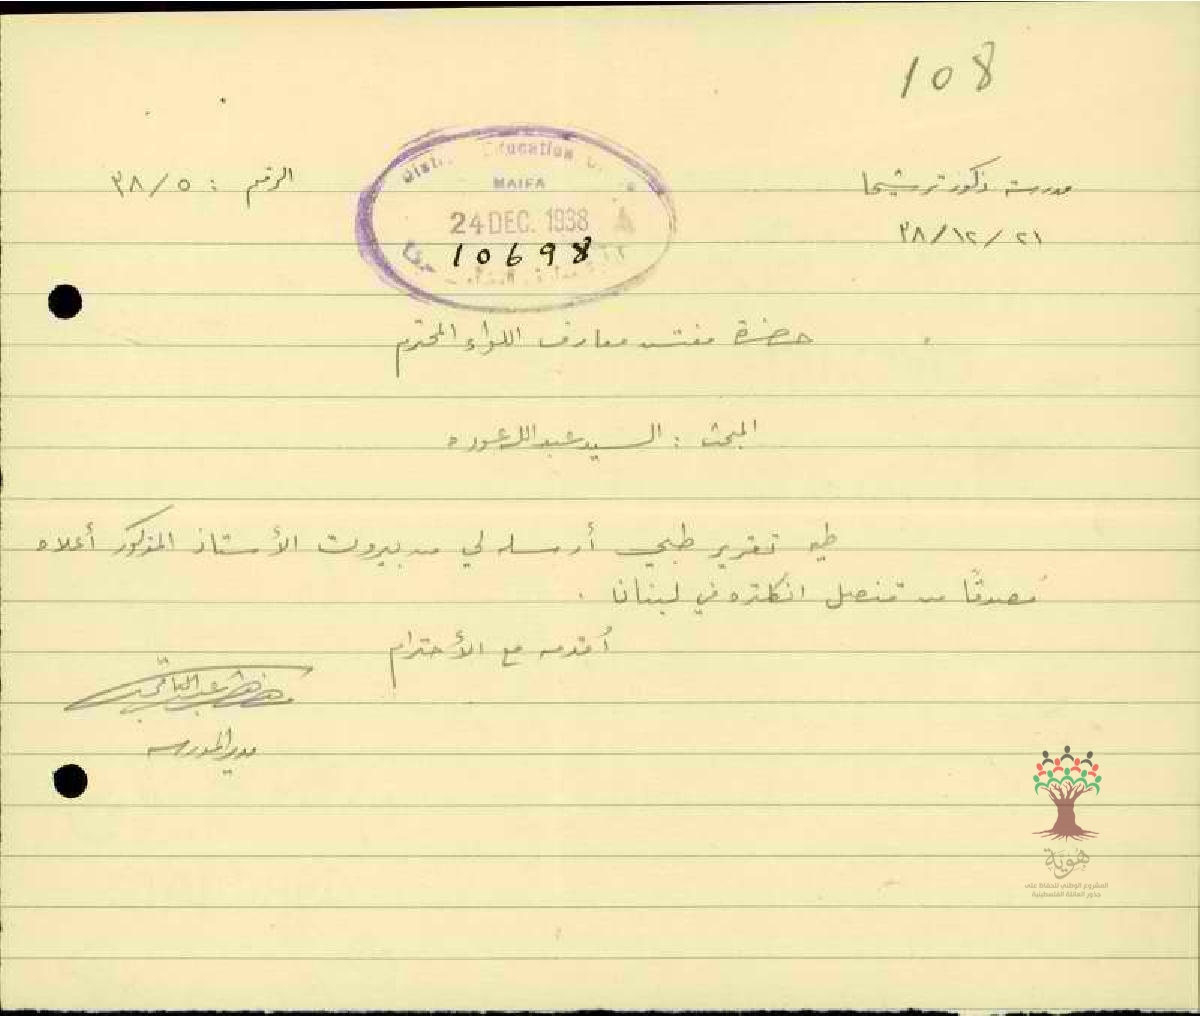 108
مدرسة ذكور ترشيحا
الرقم : ٣٨/٥
٣٨/١٢/٢١
District Education
HAIFA
24 DEC. 1938
10698
حيفا
حضرة مفتش معارف اللواء المحترم
المبحث : السيد عبدالله عوده
طيه تقرير طبي أرسله لي من بيروت الأستاذ المذكور أعلاه
مُصدقًا من قنصل انكلتره في لبنان .
أُقدمه مع الأحترام
مدير المدرسه
هُوِيَة
المشروع الوطني للحفاظ على
جذور العائلة الفلسطينية